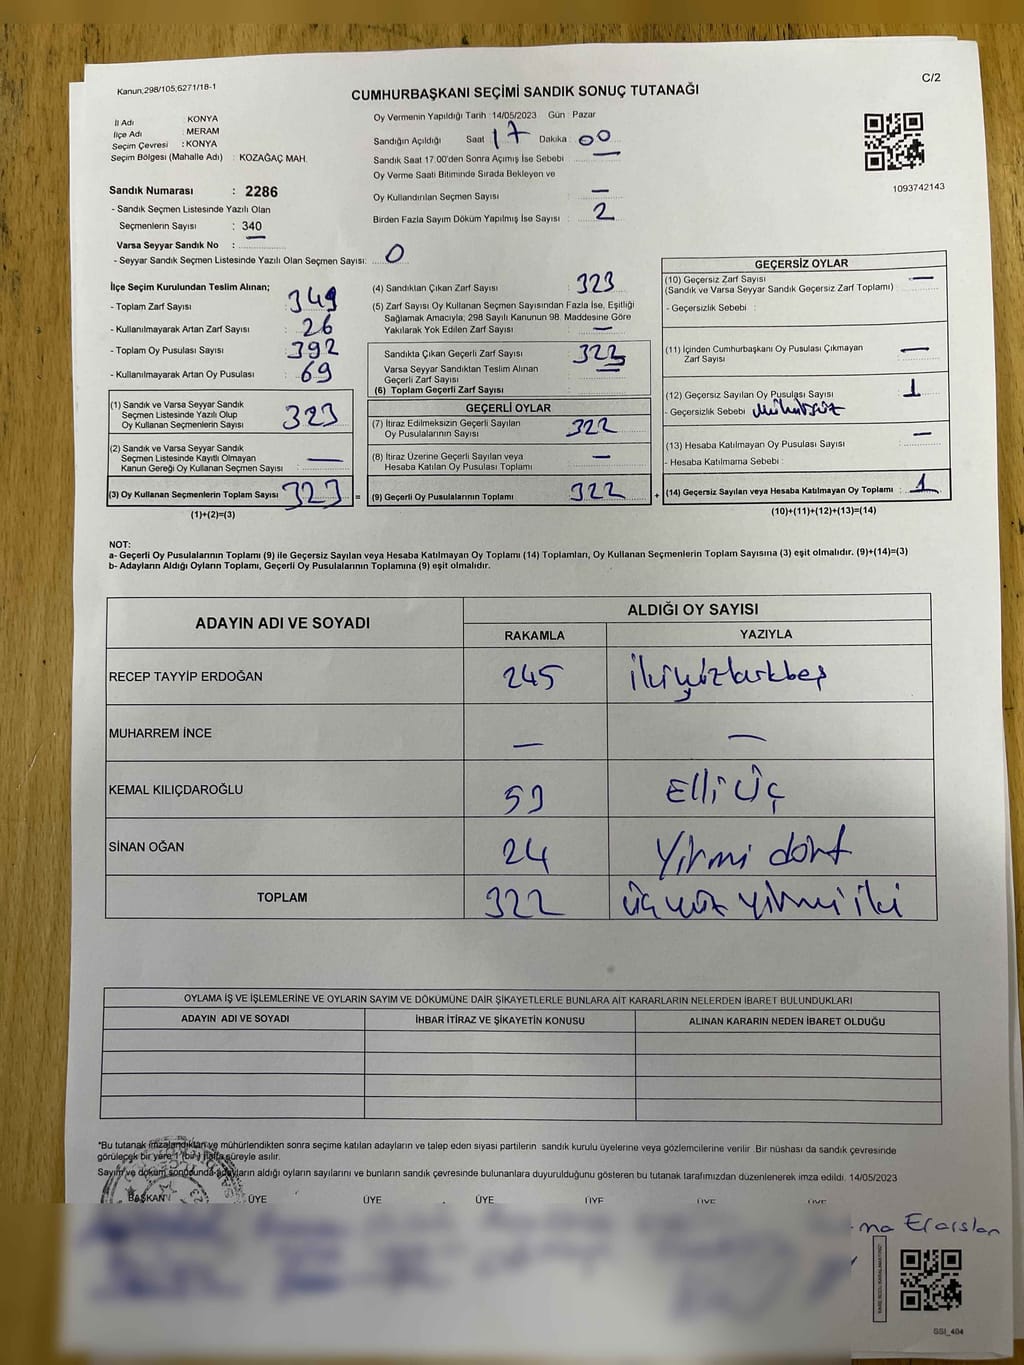 Kanun,298/105,6271/18-1
C/2
CUMHURBAŞKANI SEÇİMİ SANDIK SONUÇ TUTANAĞI
İl Adı KONYA
İlçe Adı : MERAM
Seçim Çevresi : KONYA
Seçim Bölgesi (Mahalle Adı) : KOZAĞAÇ MAH.
Oy Vermenin Yapıldığı Tarih :14/05/2023 Gün : Pazar
Sandığın Açıldığı Saat 17 Dakika : 00
Sandık Saat 17:00'den Sonra Açımış İse Sebebi —
Oy Verme Saati Bitiminde Sırada Bekleyen ve
Oy Kullandırılan Seçmen Sayısı —
Birden Fazla Sayım Döküm Yapılmış İse Sayısı : 2
1093742143
Sandık Numarası : 2286
- Sandık Seçmen Listesinde Yazılı Olan
Seçmenlerin Sayısı : 340
Varsa Seyyar Sandık No : —
- Seyyar Sandık Seçmen Listesinde Yazılı Olan Seçmen Sayısı: 0
İlçe Seçim Kurulundan Teslim Alınan;
- Toplam Zarf Sayısı : 349
- Kullanılmayarak Artan Zarf Sayısı : 26
- Toplam Oy Pusulası Sayısı : 392
- Kullanılmayarak Artan Oy Pusulası : 69
(1) Sandık ve Varsa Seyyar Sandık
Seçmen Listesinde Yazılı Olup
Oy Kullanan Seçmenlerin Sayısı : 323
(2) Sandık ve Varsa Seyyar Sandık
Seçmen Listesinde Kayıtlı Olmayan
Kanun Gereği Oy Kullanan Seçmen Sayısı : —
(3) Oy Kullanan Seçmenlerin Toplam Sayısı : 323 =
(1)+(2)=(3)
(4) Sandıktan Çıkan Zarf Sayısı : 323
(5) Zarf Sayısı Oy Kullanan Seçmen Sayısından Fazla İse, Eşitliği
Sağlamak Amacıyla; 298 Sayılı Kanunun 98. Maddesine Göre
Yakılarak Yok Edilen Zarf Sayısı : —
Sandıkta Çıkan Geçerli Zarf Sayısı : 323
Varsa Seyyar Sandıktan Teslim Alınan
Geçerli Zarf Sayısı : —
(6) Toplam Geçerli Zarf Sayısı :
GEÇERLİ OYLAR
(7) İtiraz Edilmeksizin Geçerli Sayılan
Oy Pusulalarının Sayısı : 322
(8) İtiraz Üzerine Geçerli Sayılan veya
Hesaba Katılan Oy Pusulası Toplamı : —
(9) Geçerli Oy Pusulalarının Toplamı : 322 +
GEÇERSİZ OYLAR
(10) Geçersiz Zarf Sayısı —
(Sandık ve Varsa Seyyar Sandık Geçersiz Zarf Toplamı) :
- Geçersizlik Sebebi :
(11) İçinden Cumhurbaşkanı Oy Pusulası Çıkmayan
Zarf Sayısı : —
(12) Geçersiz Sayılan Oy Pusulası Sayısı : 1
- Geçersizlik Sebebi : Mühürsüz
(13) Hesaba Katılmayan Oy Pusulası Sayısı : —
- Hesaba Katılmama Sebebi :
(14) Geçersiz Sayılan veya Hesaba Katılmayan Oy Toplamı : 1
(10)+(11)+(12)+(13)=(14)
NOT:
a- Geçerli Oy Pusulalarının Toplamı (9) ile Geçersiz Sayılan veya Hesaba Katılmayan Oy Toplamı (14) Toplamları, Oy Kullanan Seçmenlerin Toplam Sayısına (3) eşit olmalıdır. (9)+(14)=(3)
b- Adayların Aldığı Oyların Toplamı, Geçerli Oy Pusulalarının Toplamına (9) eşit olmalıdır.
ADAYIN ADI VE SOYADI ALDIĞI OY SAYISI
RAKAMLA YAZIYLA
RECEP TAYYİP ERDOĞAN 245 ikiyüzkırkbeş
MUHARREM İNCE — —
KEMAL KILIÇDAROĞLU 53 Elli Üç
SİNAN OĞAN 24 Yirmi dört
TOPLAM 322 üç yüz yirmi iki
OYLAMA İŞ VE İŞLEMLERİNE VE OYLARIN SAYIM VE DÖKÜMÜNE DAİR ŞİKAYETLERLE BUNLARA AİT KARARLARIN NELERDEN İBARET BULUNDUKLARI
ADAYIN ADI VE SOYADI İHBAR İTİRAZ VE ŞİKAYETİN KONUSU ALINAN KARARIN NEDEN İBARET OLDUĞU
*Bu tutanak imzalandıktan ve mühürlendikten sonra seçime katılan adayların ve talep eden siyasi partilerin sandık kurulu üyelerine veya gözlemcilerine verilir. Bir nüshası da sandık çevresinde
görülecek bir yere 1 (bir) hafta süreyle asılır.
Sayım ve döküm sonucunda adayların aldığı oyların sayılarını ve bunların sandık çevresinde bulunanlara duyurulduğunu gösteren bu tutanak tarafımızdan düzenlenerek imza edildi. 14/05/2023
BAŞKAN ÜYE ÜYE ÜYE ÜYE ÜYE ÜYE
ma Erarslan
SSI_404